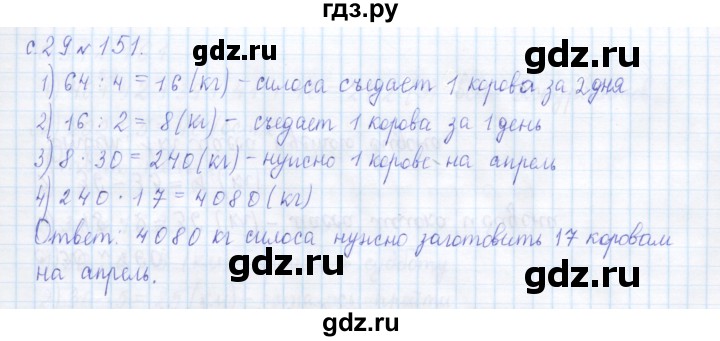 гдз.ру
с.29 № 151.
1) 64 : 4 = 16 (кг) - силоса съедает 1 корова за 2 дня
2) 16 : 2 = 8 (кг) - съедает 1 корова за 1 день
3) 8 · 30 = 240 (кг) - нужно 1 корове на апрель
4) 240 · 17 = 4080 (кг)
Ответ: 4080 кг силоса нужно заготовить 17 коровам
на апрель.
gdz.ru gdz.ru
gdz.ru